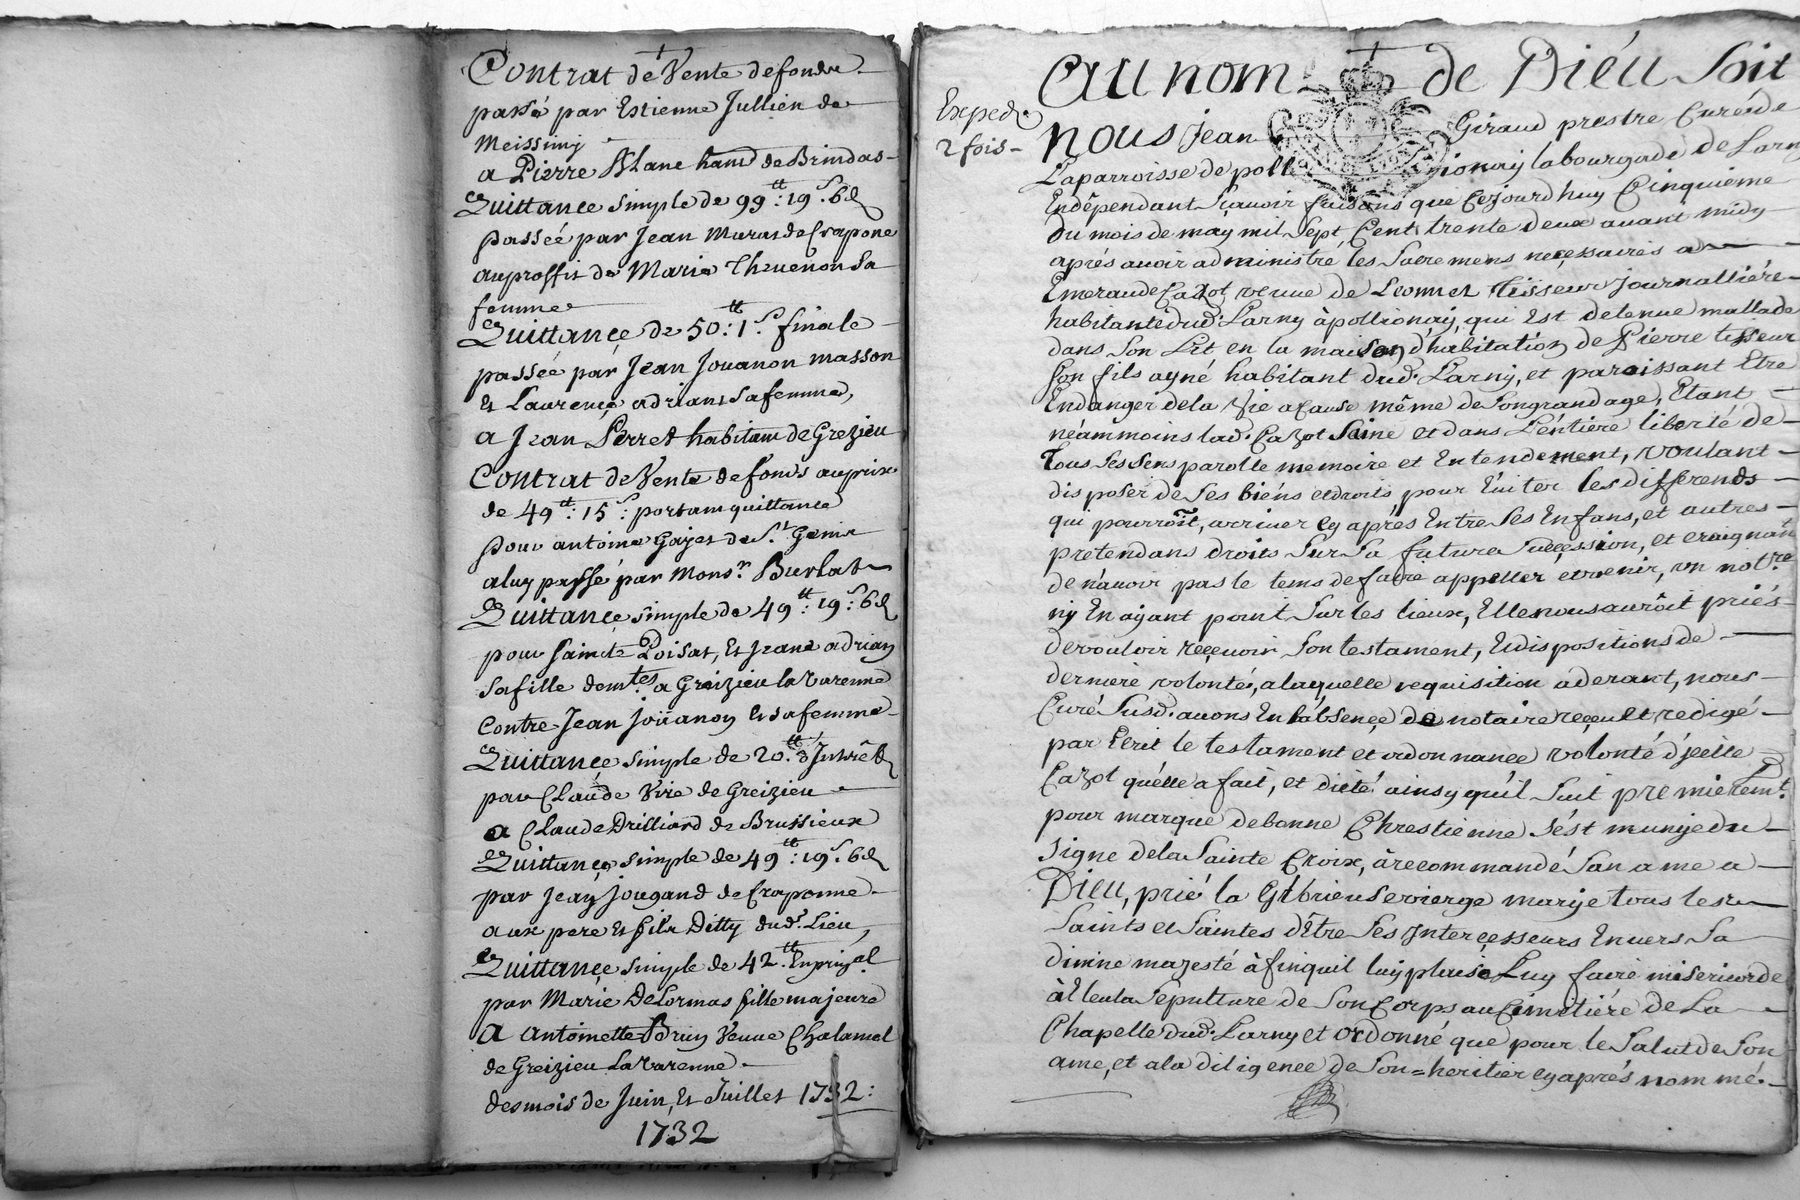 Contrat de Vente de fonds
passé par Estienne Jullien de
Meissimy
a Pierre Blanc habnt de Brindas
Quittance simple de 99tt: 19s. 6d
passée par Jean Muras de Crapone
auproffit de Marie Thevenon Sa
femme
Quittance de 50tt: 1s. finale
passée par Jean Jouanon masson
Et Laurence adrians Safemme,
a Jean Perret habitant de Grezieu
Contrat de Vente de fonds auprix
de 49tt: 15s: portant quittance
pour antoine Gayet de St. Genis
aluy passé par Monsr. Burlat
Quittance simple de 49tt: 19s: 6d
pour Saincte Poisat, Et Jeane adrian
Safille demtes a Greizieu la Varenne
Contre Jean Joüanon Et safemme
Quittance simple de 20tt.
par Claude Vire de Greizieu
a Claude Drilliard de Brussieux
Quittance simple de 49tt: 19s. 6d
par Jean Jougand de Craponne
aux pere Et fils Ditty dud. Lieu,
Quittance simple de 42tt. Enprinal.
par Marie DeLormas fille majeure
A antoinette Brun Veuve Chalamel
de Greizieu La Varenne
desmois de Juin, Et Juillet 1732:
1732
Exped.
2 fois
Au nom de Diéu Soit
nous Jean Giraud prestre Curé de
Laparroisse de poll ionay labourgade de Larny
Endépendant Sçavoir faisons que Cejourd'huy Cinquieme
du mois de may mil Sept Cent trente deux avant midy
aprés avoir administré les Sacremens necessaires a
Emeraude Cazot veuve de Leonnet tisseur journalliére
habitante dud. Larny àpollionay, qui Est detenue mallade
dans Son Lit en la maison d'habitation de Pierre tisseur
Son fils ayné habitant dud. Larny, et paroissant Etre
Endanger dela Vie acause même de Songrandage, Etant
néammoins lad. Cazot Saine et dans L'entiere liberté de
Tous Ses Sens parolle memoire et Entendement, voulant
disposer de Ses biéns etdroits pour Eviter les differends
qui pourroît, arriver cy aprés Entre Ses Enfans, et autres
pretendans droits Sur Sa future Succession, et craignant
de n'avoir pas le tems de faire appeller etvenir, un notre
ny En ayant point Sur les lieux, Elle nous auroît priés
devouloir reçevoir Son testament, Et dispositions de
derniere volonté, alaquelle requisition aderant, nous
Curé Susd. avons En l'absençe de notaire reçeu et redigé
par Ecrit le testament et ordonnance volonté d'jcelle
Cazot quelle a fait, et dicté ainsy qu'il Suit premierement.
pour marque debonne Chrestienne S'ést munijedu
Signe dela Sainte Croix, à recommandé San ame a
DIEU, prié la Glorieuse vierge marije tous les
Saints et Saintes d'Etre Ses Jnterçesseurs Envers Sa
divine majesté àfinquil luy plaise Luy faire misericorde
à Eleu la Sepulture de Son Corps au Cimetiére de La
Chapelle dud. Larny et ordonné que pour le Salut de Son
ame, et ala diligence de Son=heritier cyaprés nommé.